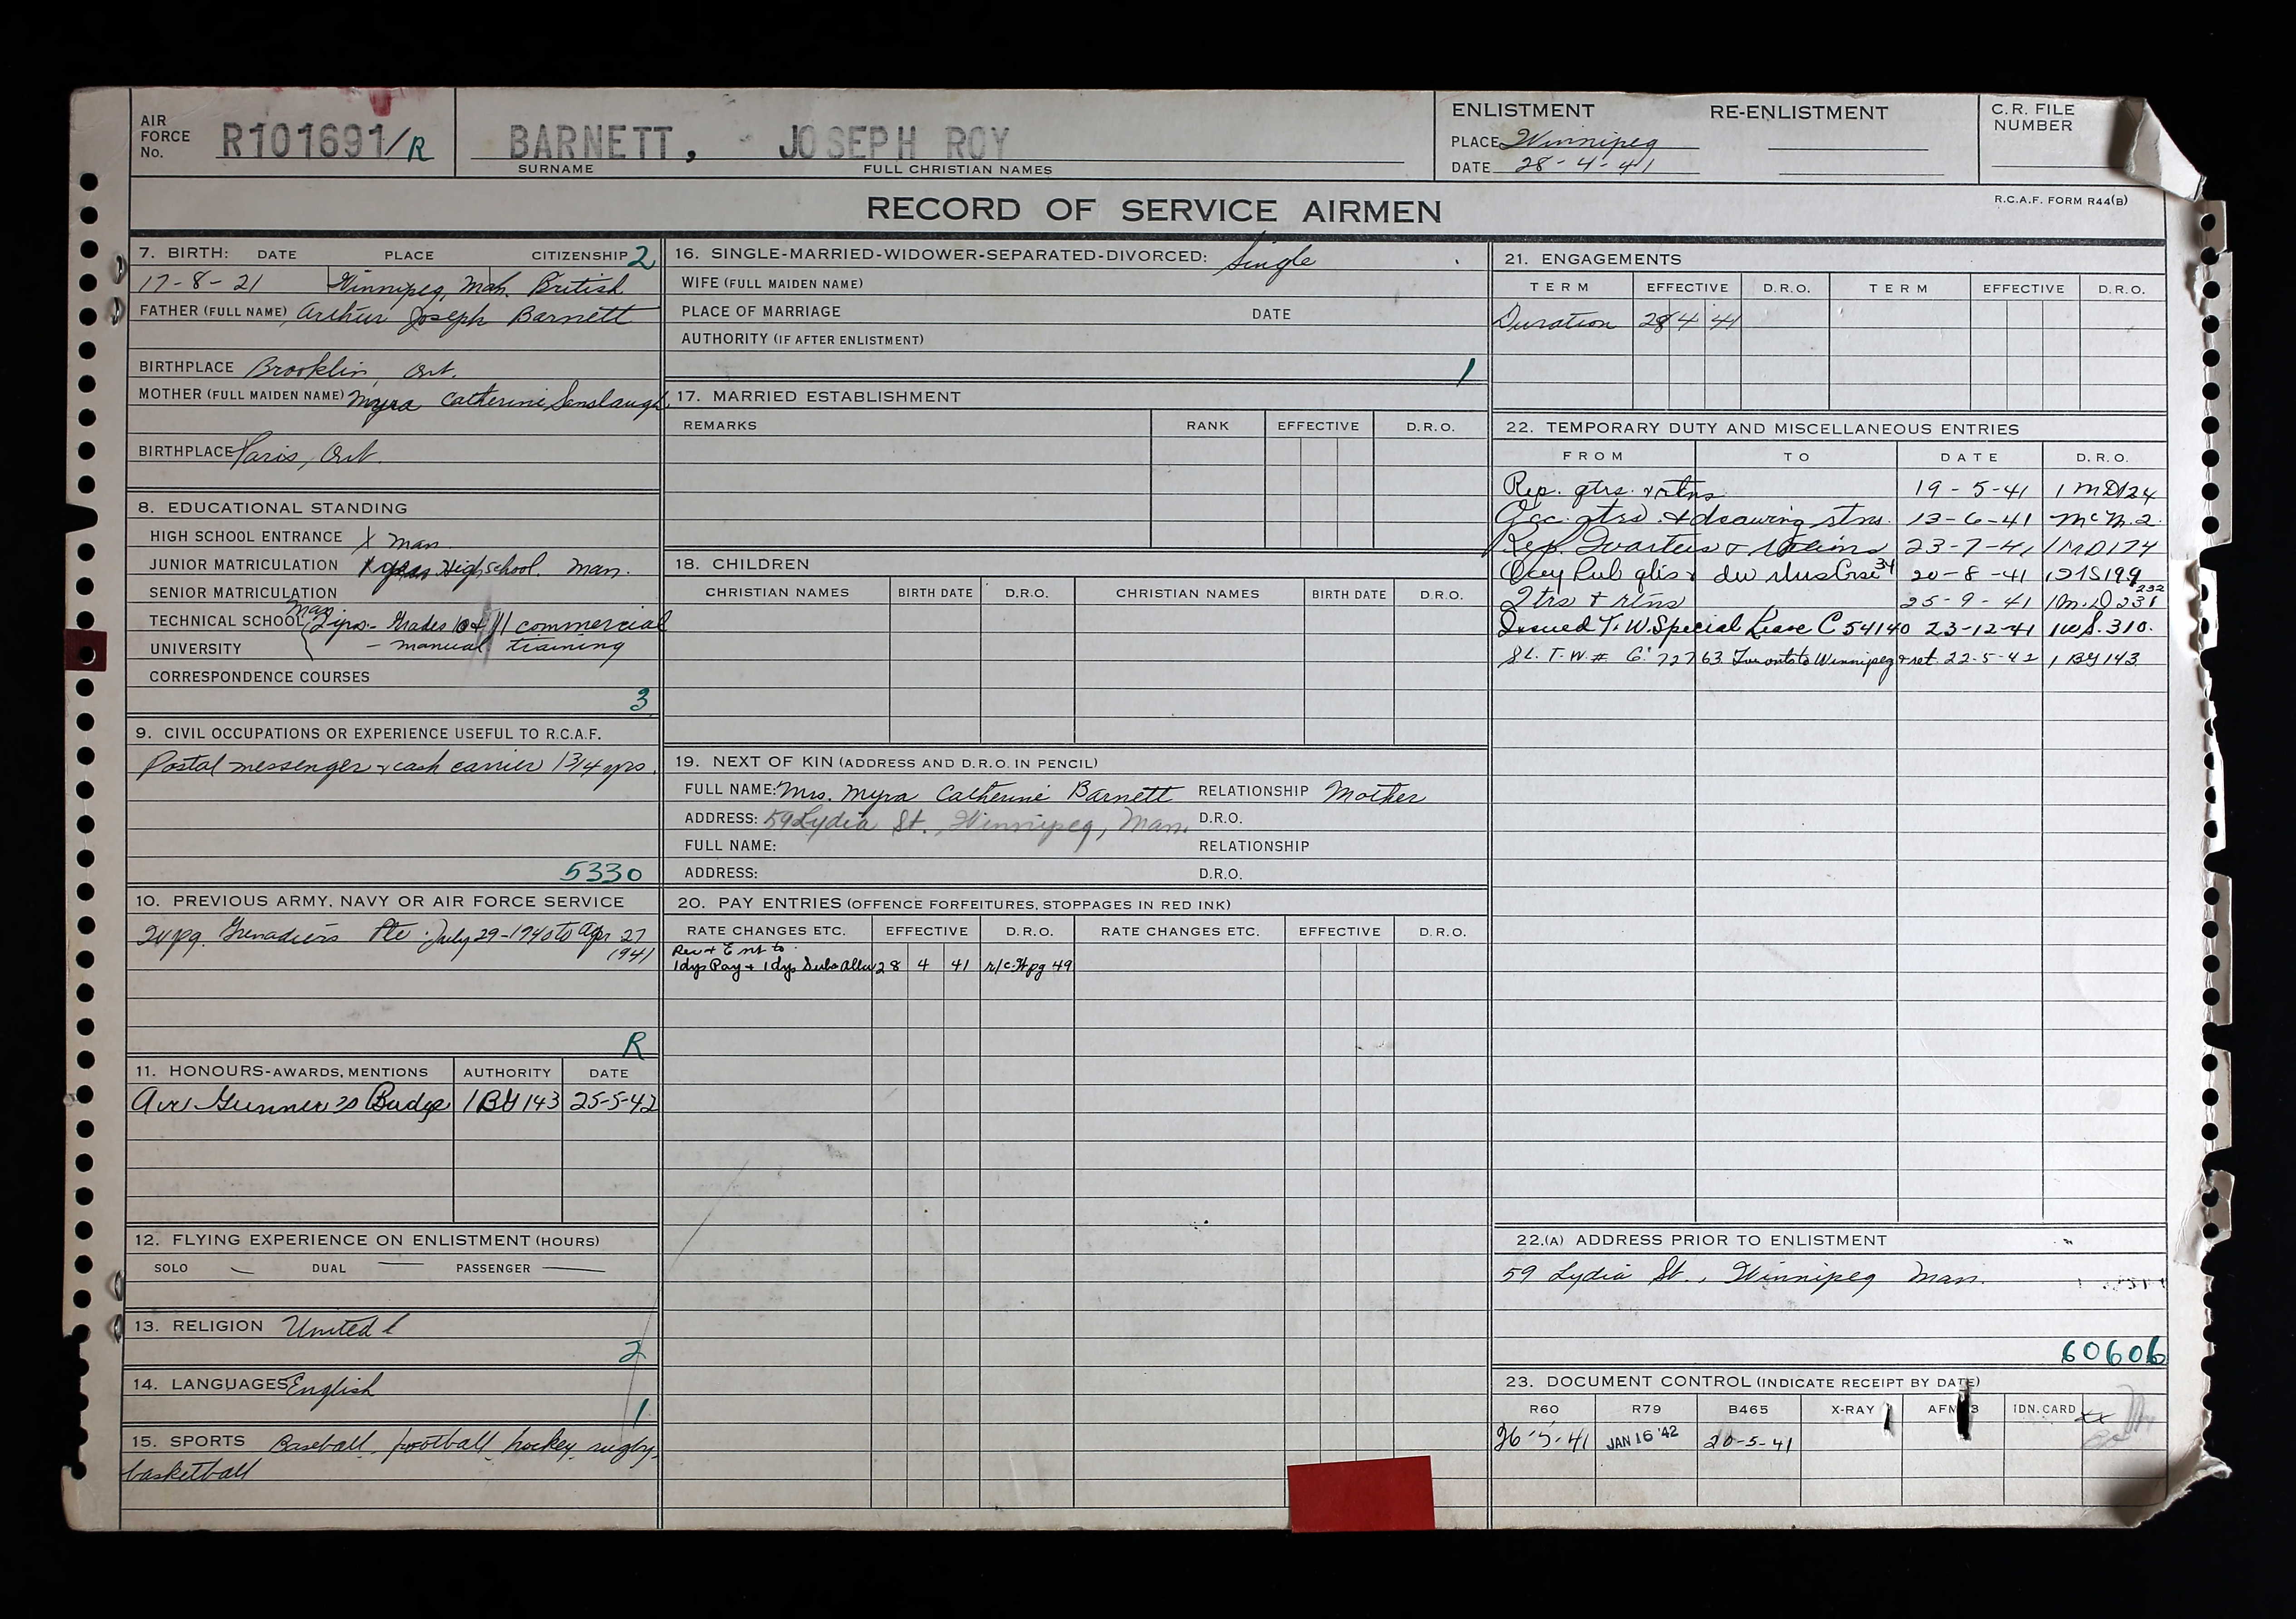 AIR FORCE No. R101691/R
BARNETT, JOSEPH ROY
SURNAME FULL CHRISTIAN NAMES
ENLISTMENT RE-ENLISTMENT
PLACE Winnipeg
DATE 28-4-41
C.R. FILE NUMBER
RECORD OF SERVICE AIRMEN
R.C.A.F. FORM R44(B)
7. BIRTH: DATE PLACE CITIZENSHIP 2
17-8-21 Winnipeg, Man. British
FATHER (FULL NAME) Arthur Joseph Barnett
BIRTHPLACE Brooklin, Ont.
MOTHER (FULL MAIDEN NAME) Myra Catherine
BIRTHPLACE Paris, Ont.
8. EDUCATIONAL STANDING
HIGH SCHOOL ENTRANCE X Man.
JUNIOR MATRICULATION X High School. Man.
SENIOR MATRICULATION
Man
TECHNICAL SCHOOL 2 yrs - Grades 10 & 11 commercial
UNIVERSITY - manual training
CORRESPONDENCE COURSES
3
9. CIVIL OCCUPATIONS OR EXPERIENCE USEFUL TO R.C.A.F.
Postal messenger & cash carrier 1 3/4 yrs.
5330
10. PREVIOUS ARMY, NAVY OR AIR FORCE SERVICE
Wpg. Grenadiers Pte. July 29-1940 to Apr 27
1941
R
11. HONOURS-AWARDS, MENTIONS AUTHORITY DATE
Air Gunner's Badge 1BG 143 25-5-42
12. FLYING EXPERIENCE ON ENLISTMENT (HOURS)
SOLO — DUAL — PASSENGER —
13. RELIGION United
2
14. LANGUAGES English
1
15. SPORTS Baseball, football, hockey, rugby,
basketball
16. SINGLE-MARRIED-WIDOWER-SEPARATED-DIVORCED: Single
WIFE (FULL MAIDEN NAME)
PLACE OF MARRIAGE DATE
AUTHORITY (IF AFTER ENLISTMENT)
1
17. MARRIED ESTABLISHMENT
REMARKS RANK EFFECTIVE D.R.O.
18. CHILDREN
CHRISTIAN NAMES BIRTH DATE D.R.O. CHRISTIAN NAMES BIRTH DATE D.R.O.
19. NEXT OF KIN (ADDRESS AND D.R.O. IN PENCIL)
FULL NAME: Mrs. Myra Catherine Barnett RELATIONSHIP Mother
ADDRESS: 59 Lydia St., Winnipeg, Man. D.R.O.
FULL NAME: RELATIONSHIP
ADDRESS: D.R.O.
20. PAY ENTRIES (OFFENCE FORFEITURES, STOPPAGES IN RED INK)
RATE CHANGES ETC. EFFECTIVE D.R.O. RATE CHANGES ETC. EFFECTIVE D.R.O.
Rec + Ent to
1dys Pay + 1dys Subs Allw 28 4 41 r/c Wpg 49
21. ENGAGEMENTS
TERM EFFECTIVE D.R.O. TERM EFFECTIVE D.R.O.
Duration 28 4 41
22. TEMPORARY DUTY AND MISCELLANEOUS ENTRIES
FROM TO DATE D.R.O.
Rep. qtrs. & rtns 19-5-41 1 MD 124
Occ. qtrs. & drawing rtns. 13-6-41 McM.2.
Rep. Quarters & Rations 23-7-41 1 MD 174
20-8-41
Qtrs & rtns 25-9-41 1 M.D 231 232
Issued T.W. Special Leave C 54140 23-12-41 1W.S. 310.
S.L. T.W. # G. 72763 Toronto to Winnipeg & ret. 22-5-42 1 BG 143
22.(A) ADDRESS PRIOR TO ENLISTMENT
59 Lydia St., Winnipeg Man.
60606
23. DOCUMENT CONTROL (INDICATE RECEIPT BY DATE)
R60 R79 B465 X-RAY IDN. CARD
JAN 16 '42 20-5-41